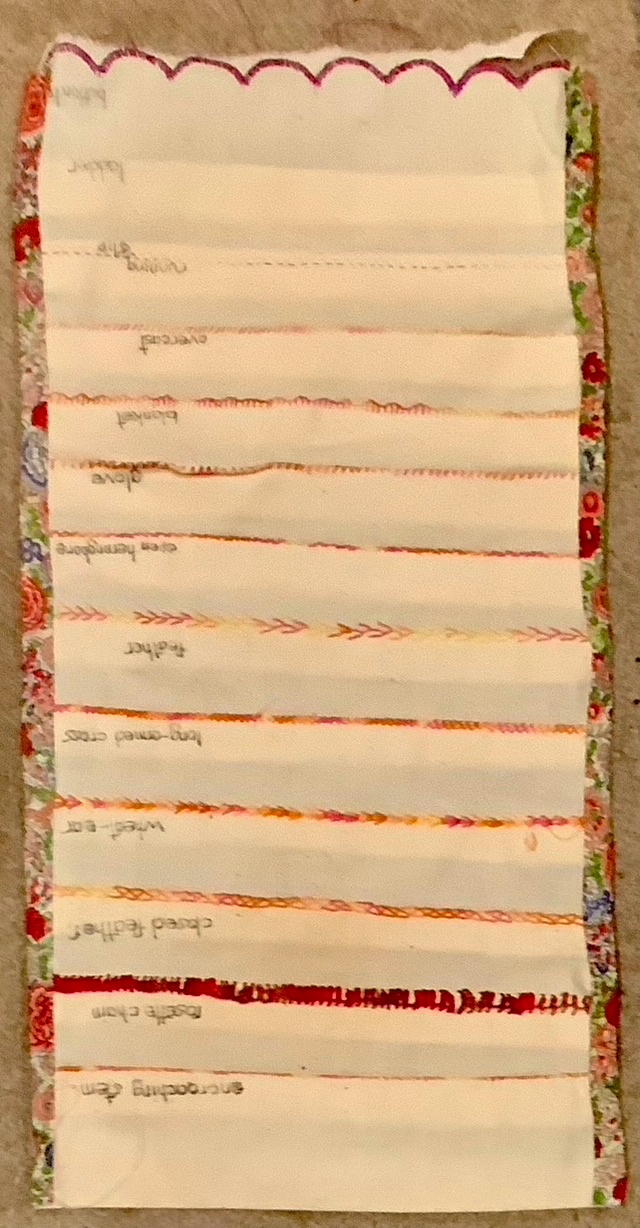 encroaching stem
rosette chain
closed feather
wheat-ear
long-armed cross
feather
open herringbone
glove
blanket
overcast
running
ladder